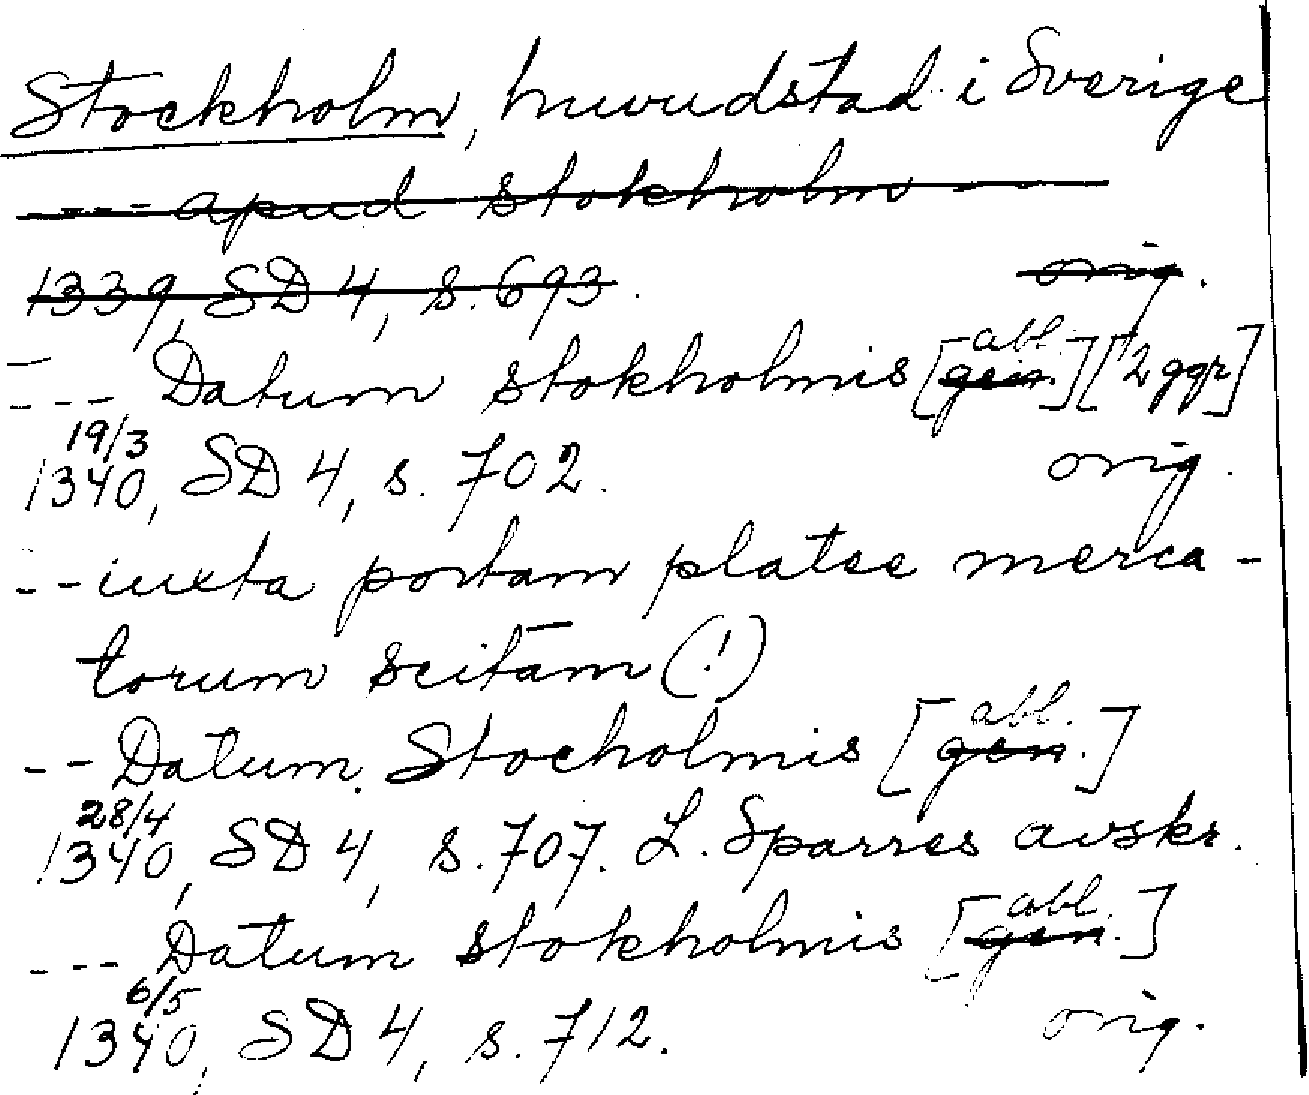 Stockholm, huvudstad i Sverige
---- apud Stokholm — —
1339, SD 4, s. 693. orig.
---- Datum Stokholmis [gen. abl.] [2 ggr]
19/3
1340, SD 4, s. 702. orig.
-- iuxta portam platee merca-
torum seitam (!)
-- Datum. Stocholmis [gen. abl.]
28/4
1340, SD 4, s. 707. L. Sparres avskr.
--- Datum Stokholmis [gen. abl.]
6/5
1340, SD 4, s. 712. orig.